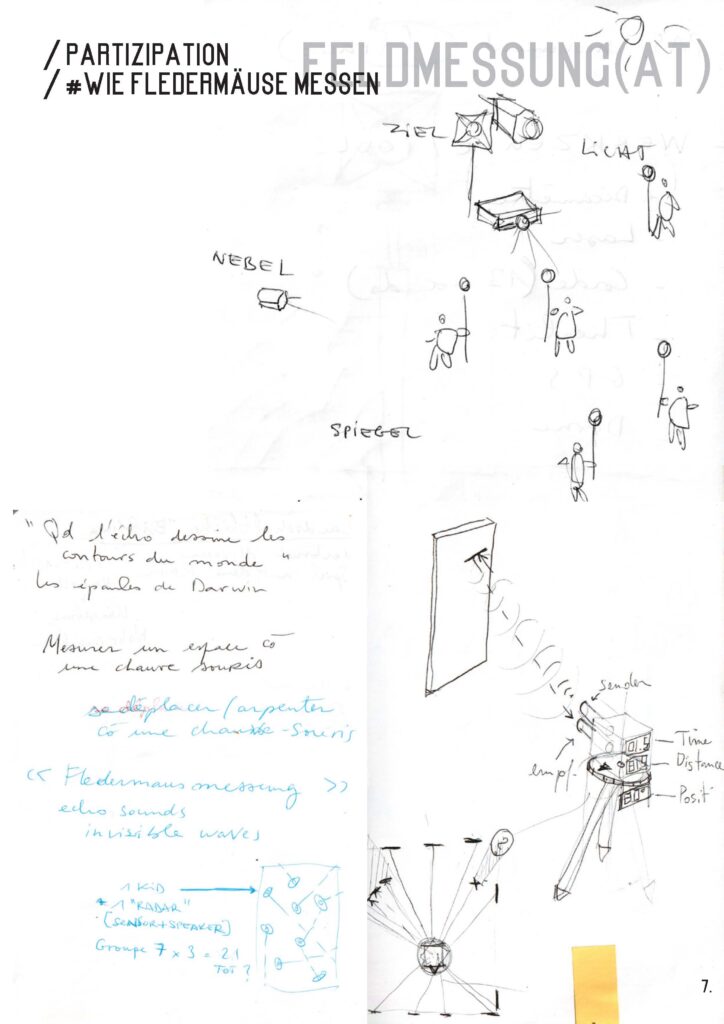 /PARTIZIPATION
FELDMESSUNG(AT)
/#WIE FLEDERMÄUSE MESSEN
ZIEL
LICHT
NEBEL
SPIEGEL
"Qd l'écho dessine les
contours du monde"
les épaules de Darwin
Mesurer un espace cō
une chauve souris
se déplacer/arpenter
cō une chauve-souris
<< Fledermausmessung >>
echo sounds
invisible waves
1 KID
* 1 "RADAR"
[SENSOR+SPEAKER]
Groupe 7 x 3 = 21
TOT ?
sender
empf.
Time
Distance
Posit
7.